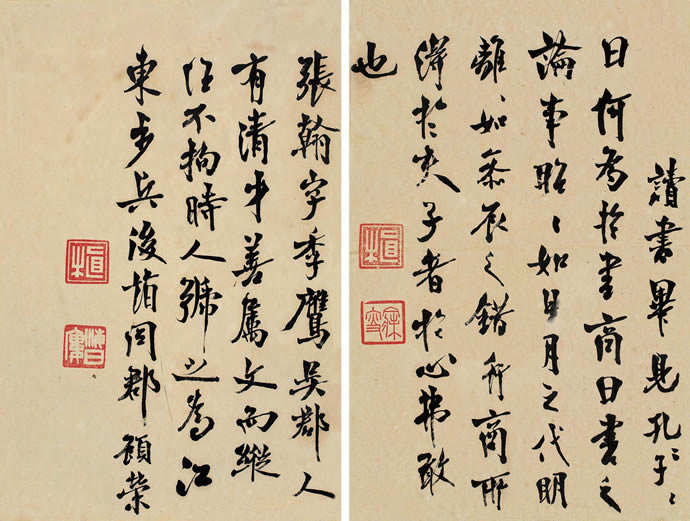 讀書畢見孔〻子〻
曰何為於書商曰書之
論事昭〻如日月之代明
離〻如參辰之錯行商所
得於夫子者於心弗敢
也
張翰字季鷹吳郡人
有清才善屬文而縱
任不拘時人號之為江
東步兵後同郡顧榮